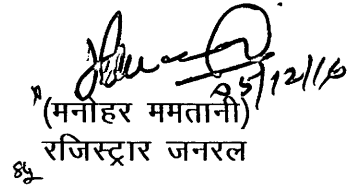 05/12/16
(मनोहर ममतानी)
रजिस्ट्रार जनरल